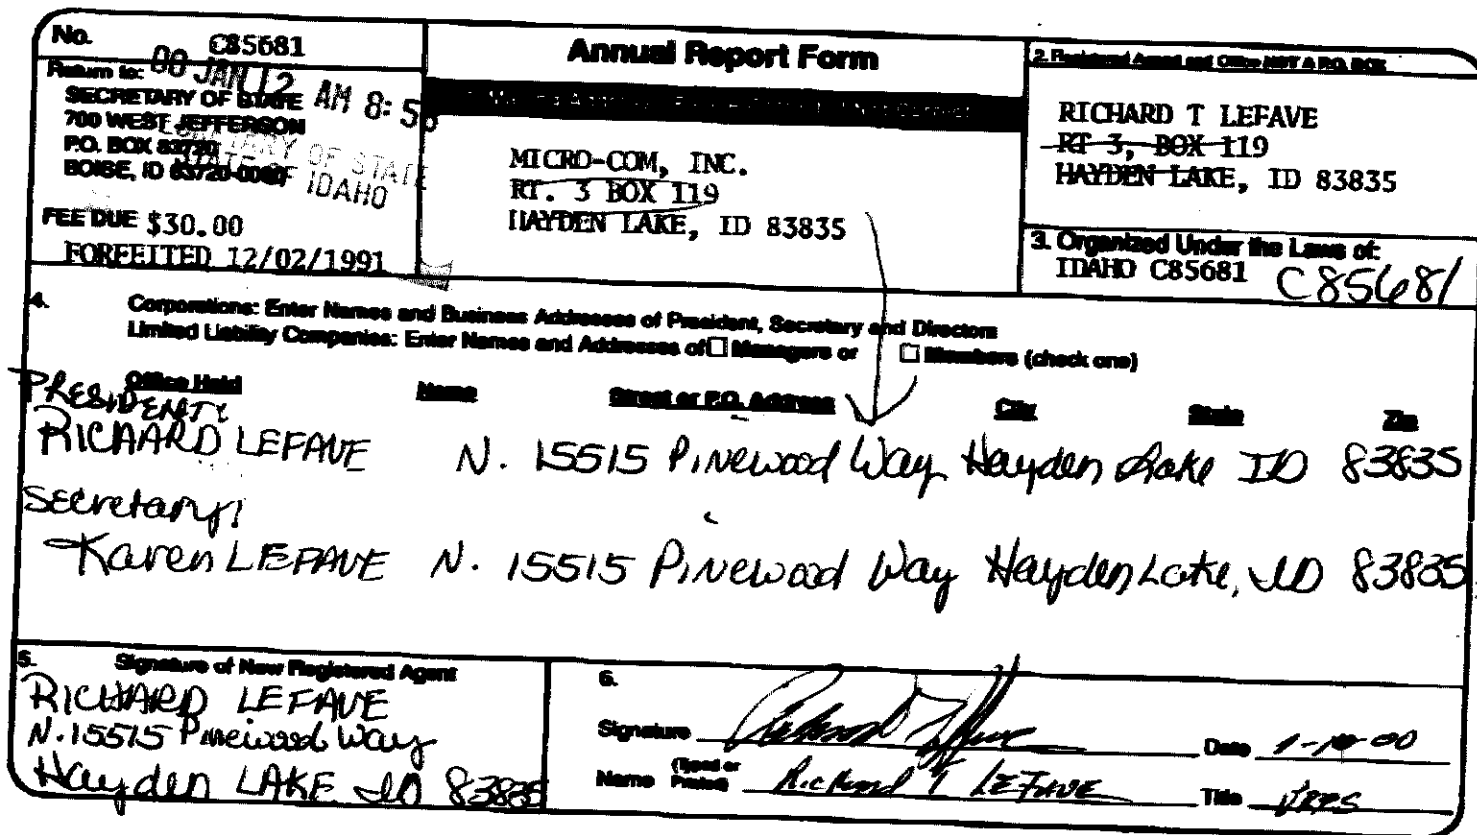 No. C85681
Return to: 00 JAN 12 AM 8:5
SECRETARY OF STATE
700 WEST JEFFERSON
P.O. BOX 83720
BOISE, ID 83720-0080
SECRETARY OF STATE
STATE OF IDAHO
FEE DUE $30.00
FORFEITED 12/02/1991
Annual Report Form
MICRO-COM, INC.
RT. 3 BOX 119
HAYDEN LAKE, ID 83835
2. Registered Agent and Office NOT A P.O. BOX
RICHARD T LEFAVE
RT 3, BOX 119
HAYDEN LAKE, ID 83835
3. Organized Under the Laws of:
IDAHO C85681 C85681
4. Corporations: Enter Names and Business Addresses of President, Secretary and Directors
Limited Liability Companies: Enter Names and Addresses of ☐ Managers or ☐ Members (check one)
Office Held Name Street or P.O. Address City State Zip
PRESIDENT:
RICHARD LEFAVE N. 15515 Pinewood Way Hayden Lake ID 83835
Secretary:
Karen LEFAVE N. 15515 Pinewood Way Hayden Lake, ID 83835
5. Signature of New Registered Agent
RICHARD LEFAVE
N. 15515 Pinewood Way
Hayden LAKE ID 83835
6.
Signature Date
Name (Typed or Printed) Richard T LEFAVE Title PRES